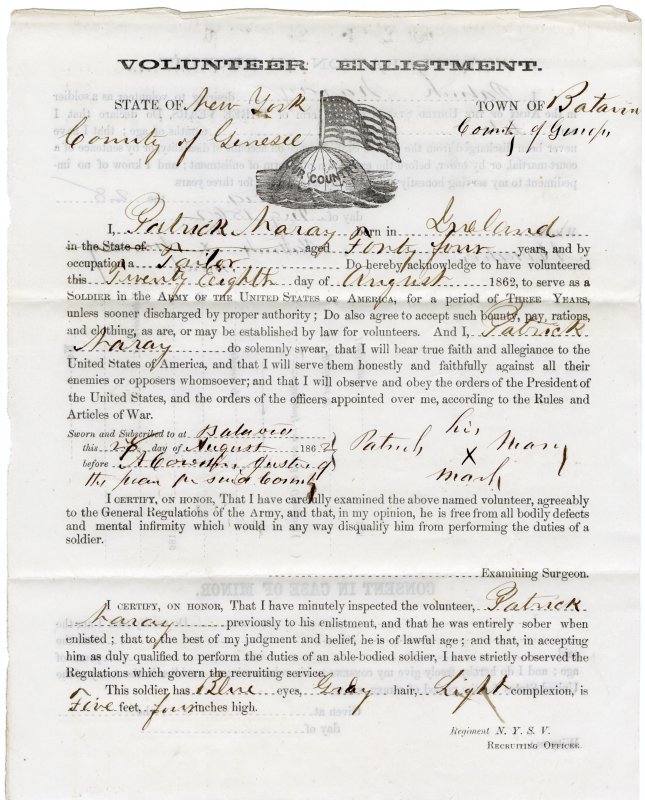 VOLUNTEER ENLISTMENT.
STATE OF New York
TOWN OF Batavia
County of Genesee
County of Genesee
OUR COUNTRY
I, Patrick Maray born in Ireland
in the State of aged Forty four years, and by
occupation a Tailor Do hereby acknowledge to have volunteered
this Twenty Eighth day of August 1862, to serve as a
SOLDIER IN THE ARMY OF THE UNITED STATES OF AMERICA, for a period of THREE YEARS,
unless sooner discharged by proper authority; Do also agree to accept such bounty, pay, rations,
and clothing, as are, or may be established by law for volunteers. And I, Patrick
Maray do solemnly swear, that I will bear true faith and allegiance to the
United States of America, and that I will serve them honestly and faithfully against all their
enemies or opposers whomsoever; and that I will observe and obey the orders of the President of
the United States, and the orders of the officers appointed over me, according to the Rules and
Articles of War.
Sworn and Subscribed to at Batavia
this 28 day of August 1862
before Justice of
the peace for said County
his
Patrick X Maray
mark
I CERTIFY, ON HONOR, That I have carefully examined the above named volunteer, agreeably
to the General Regulations of the Army, and that, in my opinion, he is free from all bodily defects
and mental infirmity which would in any way disqualify him from performing the duties of a
soldier.
Examining Surgeon.
I CERTIFY, ON HONOR, That I have minutely inspected the volunteer, Patrick
Maray previously to his enlistment, and that he was entirely sober when
enlisted; that to the best of my judgment and belief, he is of lawful age; and that, in accepting
him as duly qualified to perform the duties of an able-bodied soldier, I have strictly observed the
Regulations which govern the recruiting service.
This soldier has Blue eyes, Gray hair, Light complexion, is
Five feet, four inches high.
Regiment N. Y. S. V.
RECRUITING OFFICER.